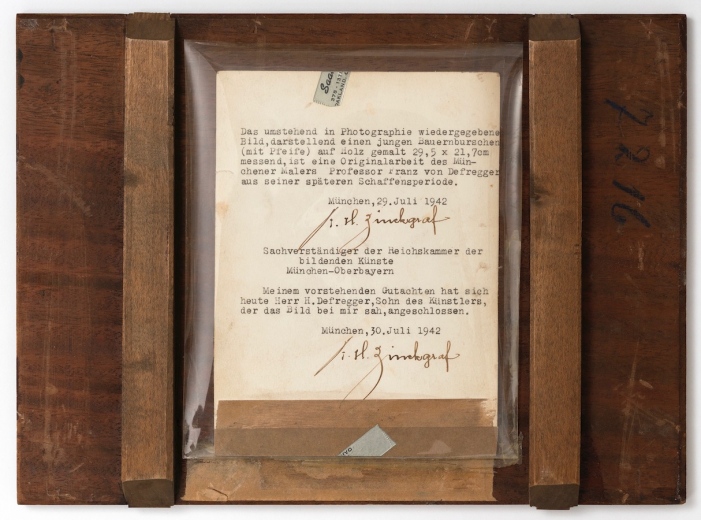 Das umstehend in Photographie wiedergegebene
Bild,darstellend einen jungen Bauernburschen
(mit Pfeife) auf Holz gemalt 29,5 x 21,7cm
messend,ist eine Originalarbeit des Mün-
chener Malers Professor Franz von Defregger
aus seiner späteren Schaffensperiode.
München,29.Juli 1942
F. H. Zinckgraf
Sachverständiger der Reichskammer der
bildenden Künste
München-Oberbayern
Meinem vorstehenden Gutachten hat sich
heute Herr H.Defregger,Sohn des Künstlers,
der das Bild bei mir sah,angeschlossen.
München,30.Juli 1942
F. H. Zinckgraf
7216